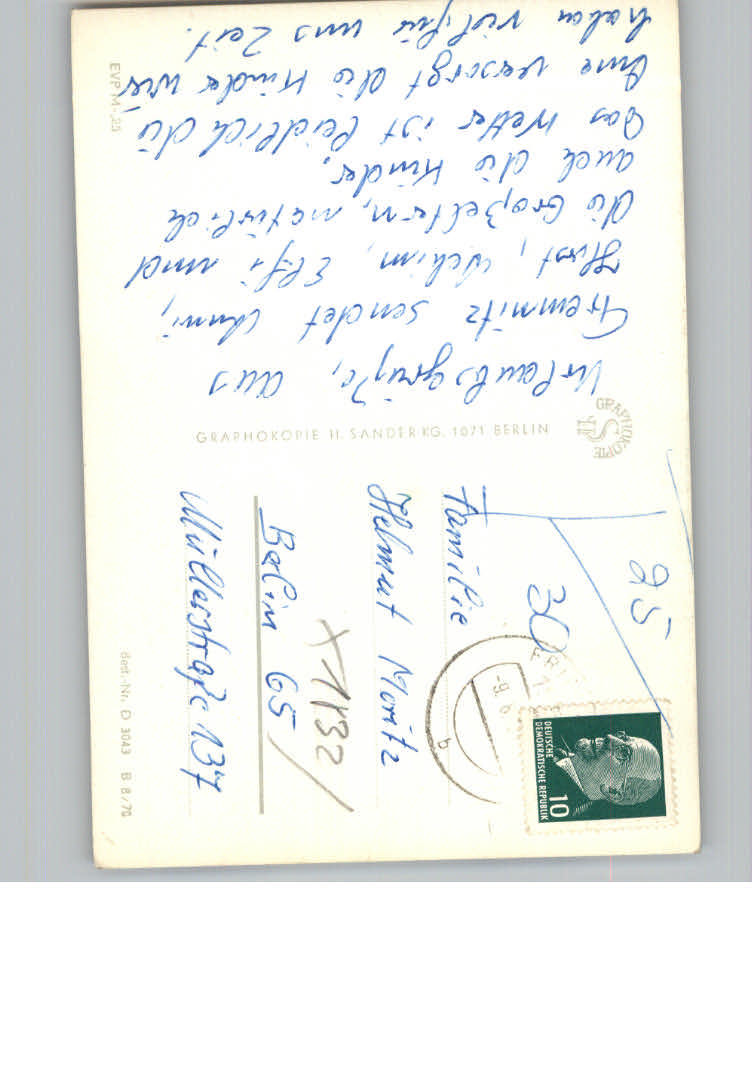 Urlaubsgrüße, aus
Gremnitz sendet Anni,
Horst, Achim, Elfi und
die Großeltern, natürlich
auch die Kinder.
Das Wetter ist leidlich die
Ome versorgt die Kinder wir
haben viel für uns Zeit.
EVP M -,25
GRAPHOKOPIE H. SANDER KG. 1071 BERLIN
GRAPHOKOPIE
Familie
Helmut Moritz
Berlin 65
Müllerstraße 137
X 1132
25
30
-9.
b
DEUTSCHE
DEMOKRATISCHE REPUBLIK
10
Best.-Nr. D 3043 B 8/70